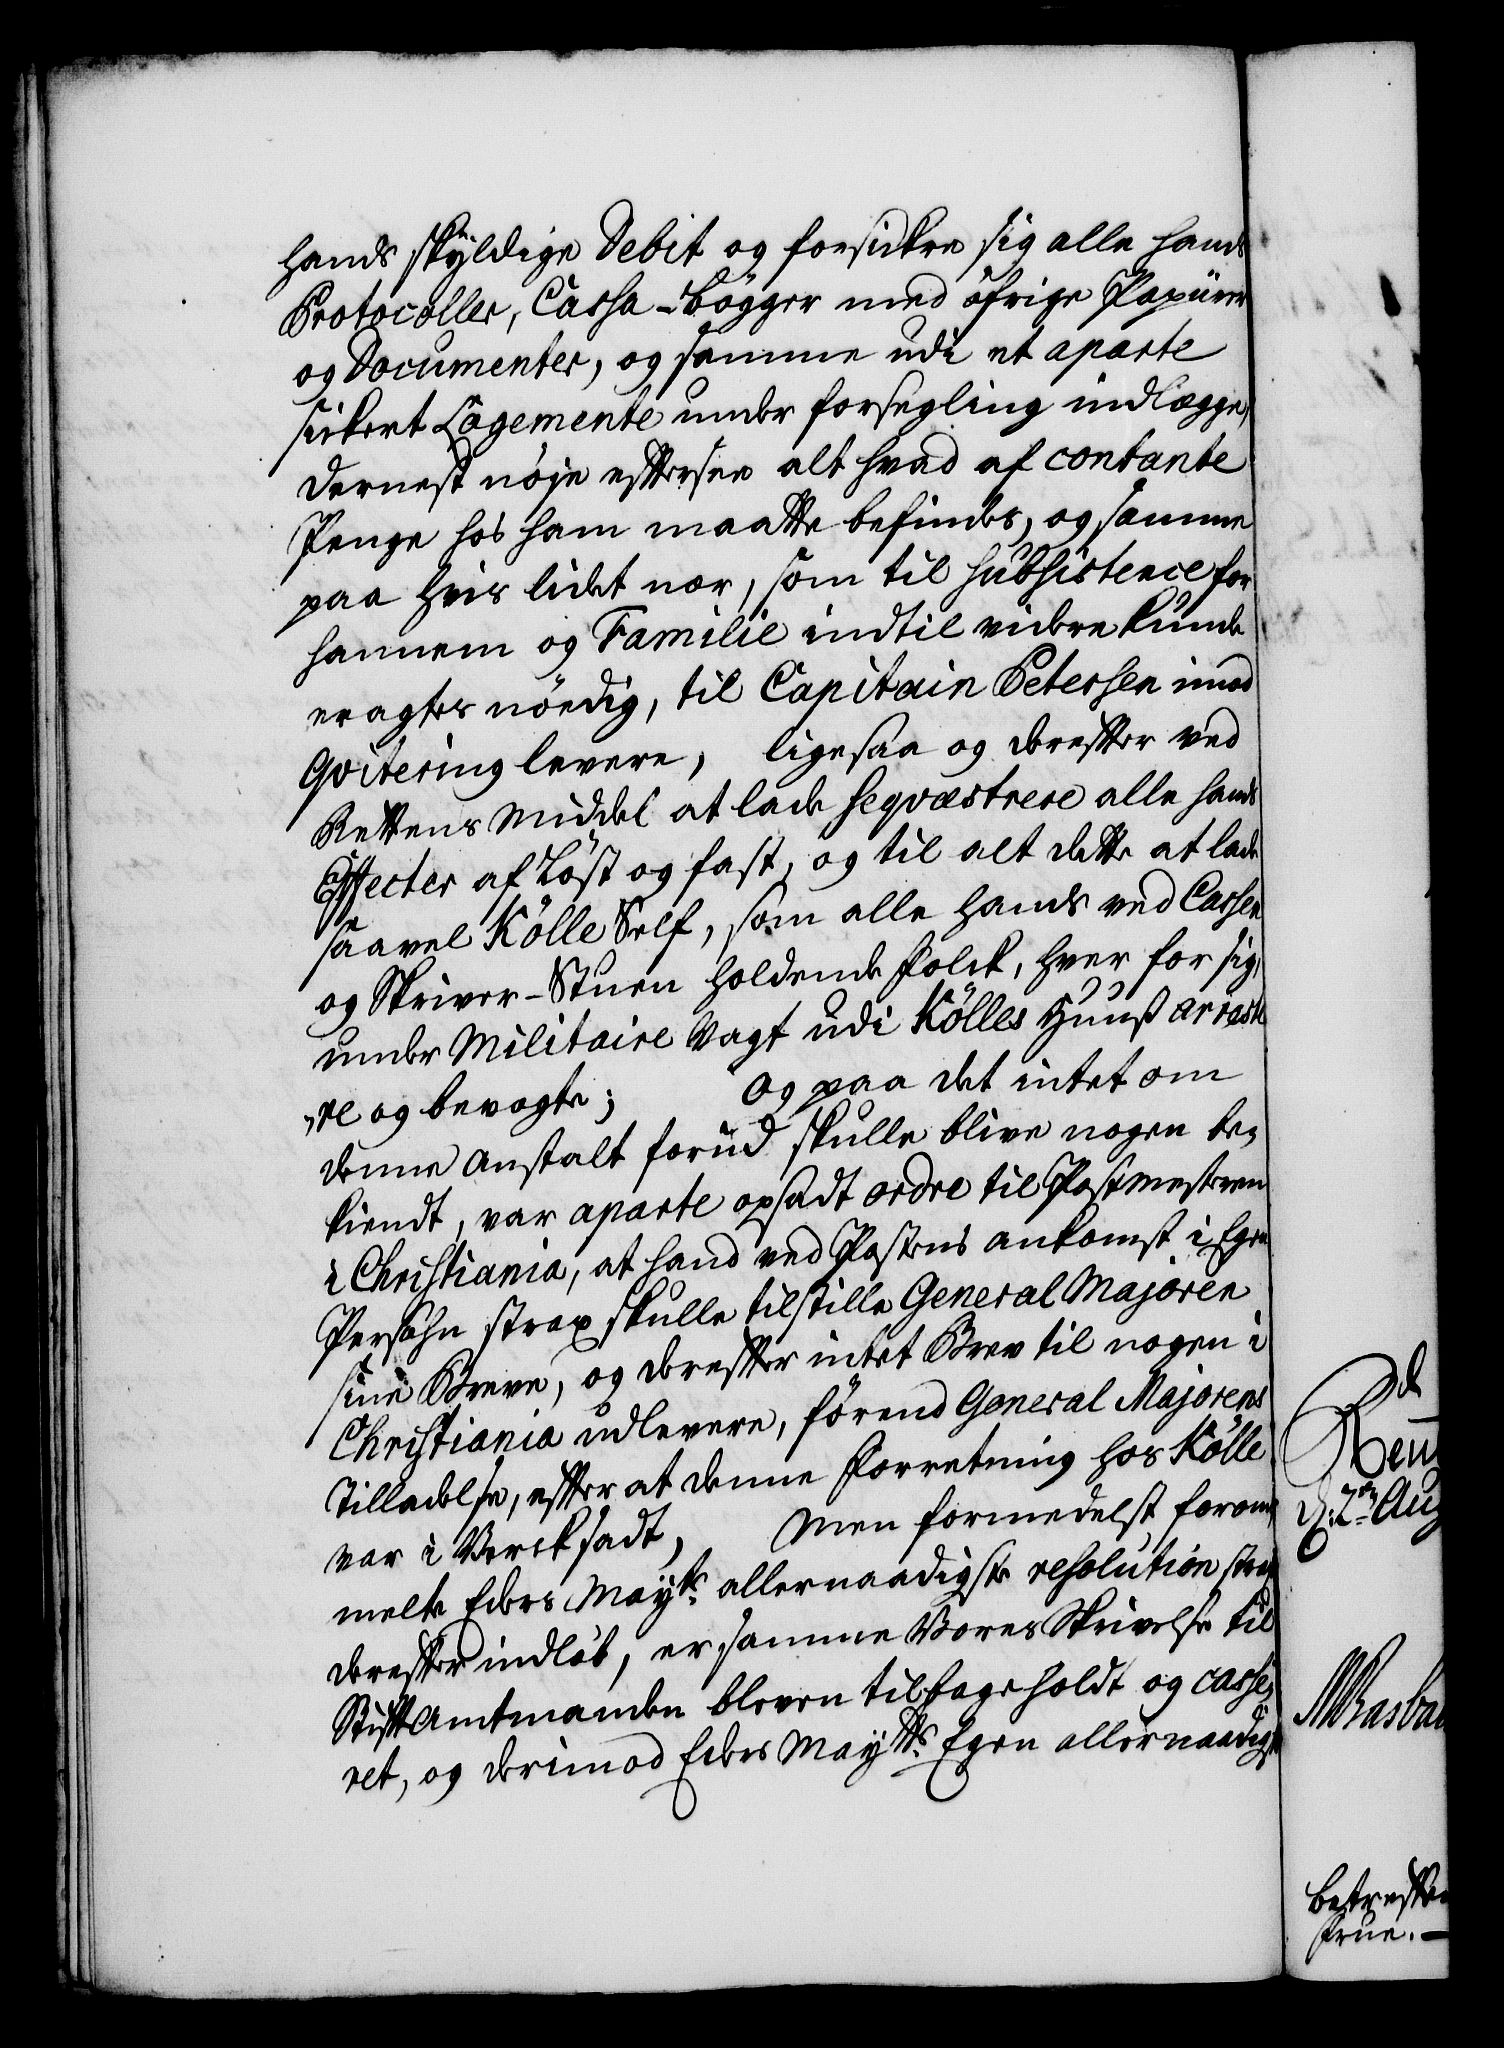 hands skyldige Debit og forsickre sig alle hands
Protocoller, Cassa-Bøgger med öfrige Papiirer
og Documenter, og samme udi et aparte
sickert Logemente under forsegling indlægge,
dernest nöje efftersee alt hvad af contante
Penge hos ham maatte befindes, og samme
paa hvis lidet nær, som til Subsistence for
hannem og Familie indtil videre kunde
eragtes nöedig, til Capitain Petersen imod
Qvitering levere, ligesaa og dereffter ved
Rettens Middel at lade Seqvæstrere alle hands
Effecter af Löst og fast, og til alt dette at lade
saavel Kölle Self, som alle hands ved Cassen
og Skriver-Stuen holdende Folck, hver for sig,
under Militaire Vagt udi Kölles Huuß arreste
re og bevogte; Og paa det intet om
denne Anstalt forud skulle blive nogen be-
kiendt, var aparte opsadt ordre til Postmesteren
i Christiania, at hand ved Postens ankomst i Egen
Persohn strax skulle tilstille General Majoren
sine Breve, og dereffter intet Brev til nogen i
Christiania udlevere, förend General Majorens
Tilladelse, effter at denne Forretning hos Kölle
var i Verck sadt, Men formedelst forom-
melte Eders Mayts allernaadigste resolution strax
dereffter indlöb, er samme Vores Skrivelse til
StifftAmtmanden bleven tilbageholdt og casse-
ret, og derimod Eders Mayts Egen allernaadigste
de
Rent
d: 2den Aug
betreffen
Frue. —